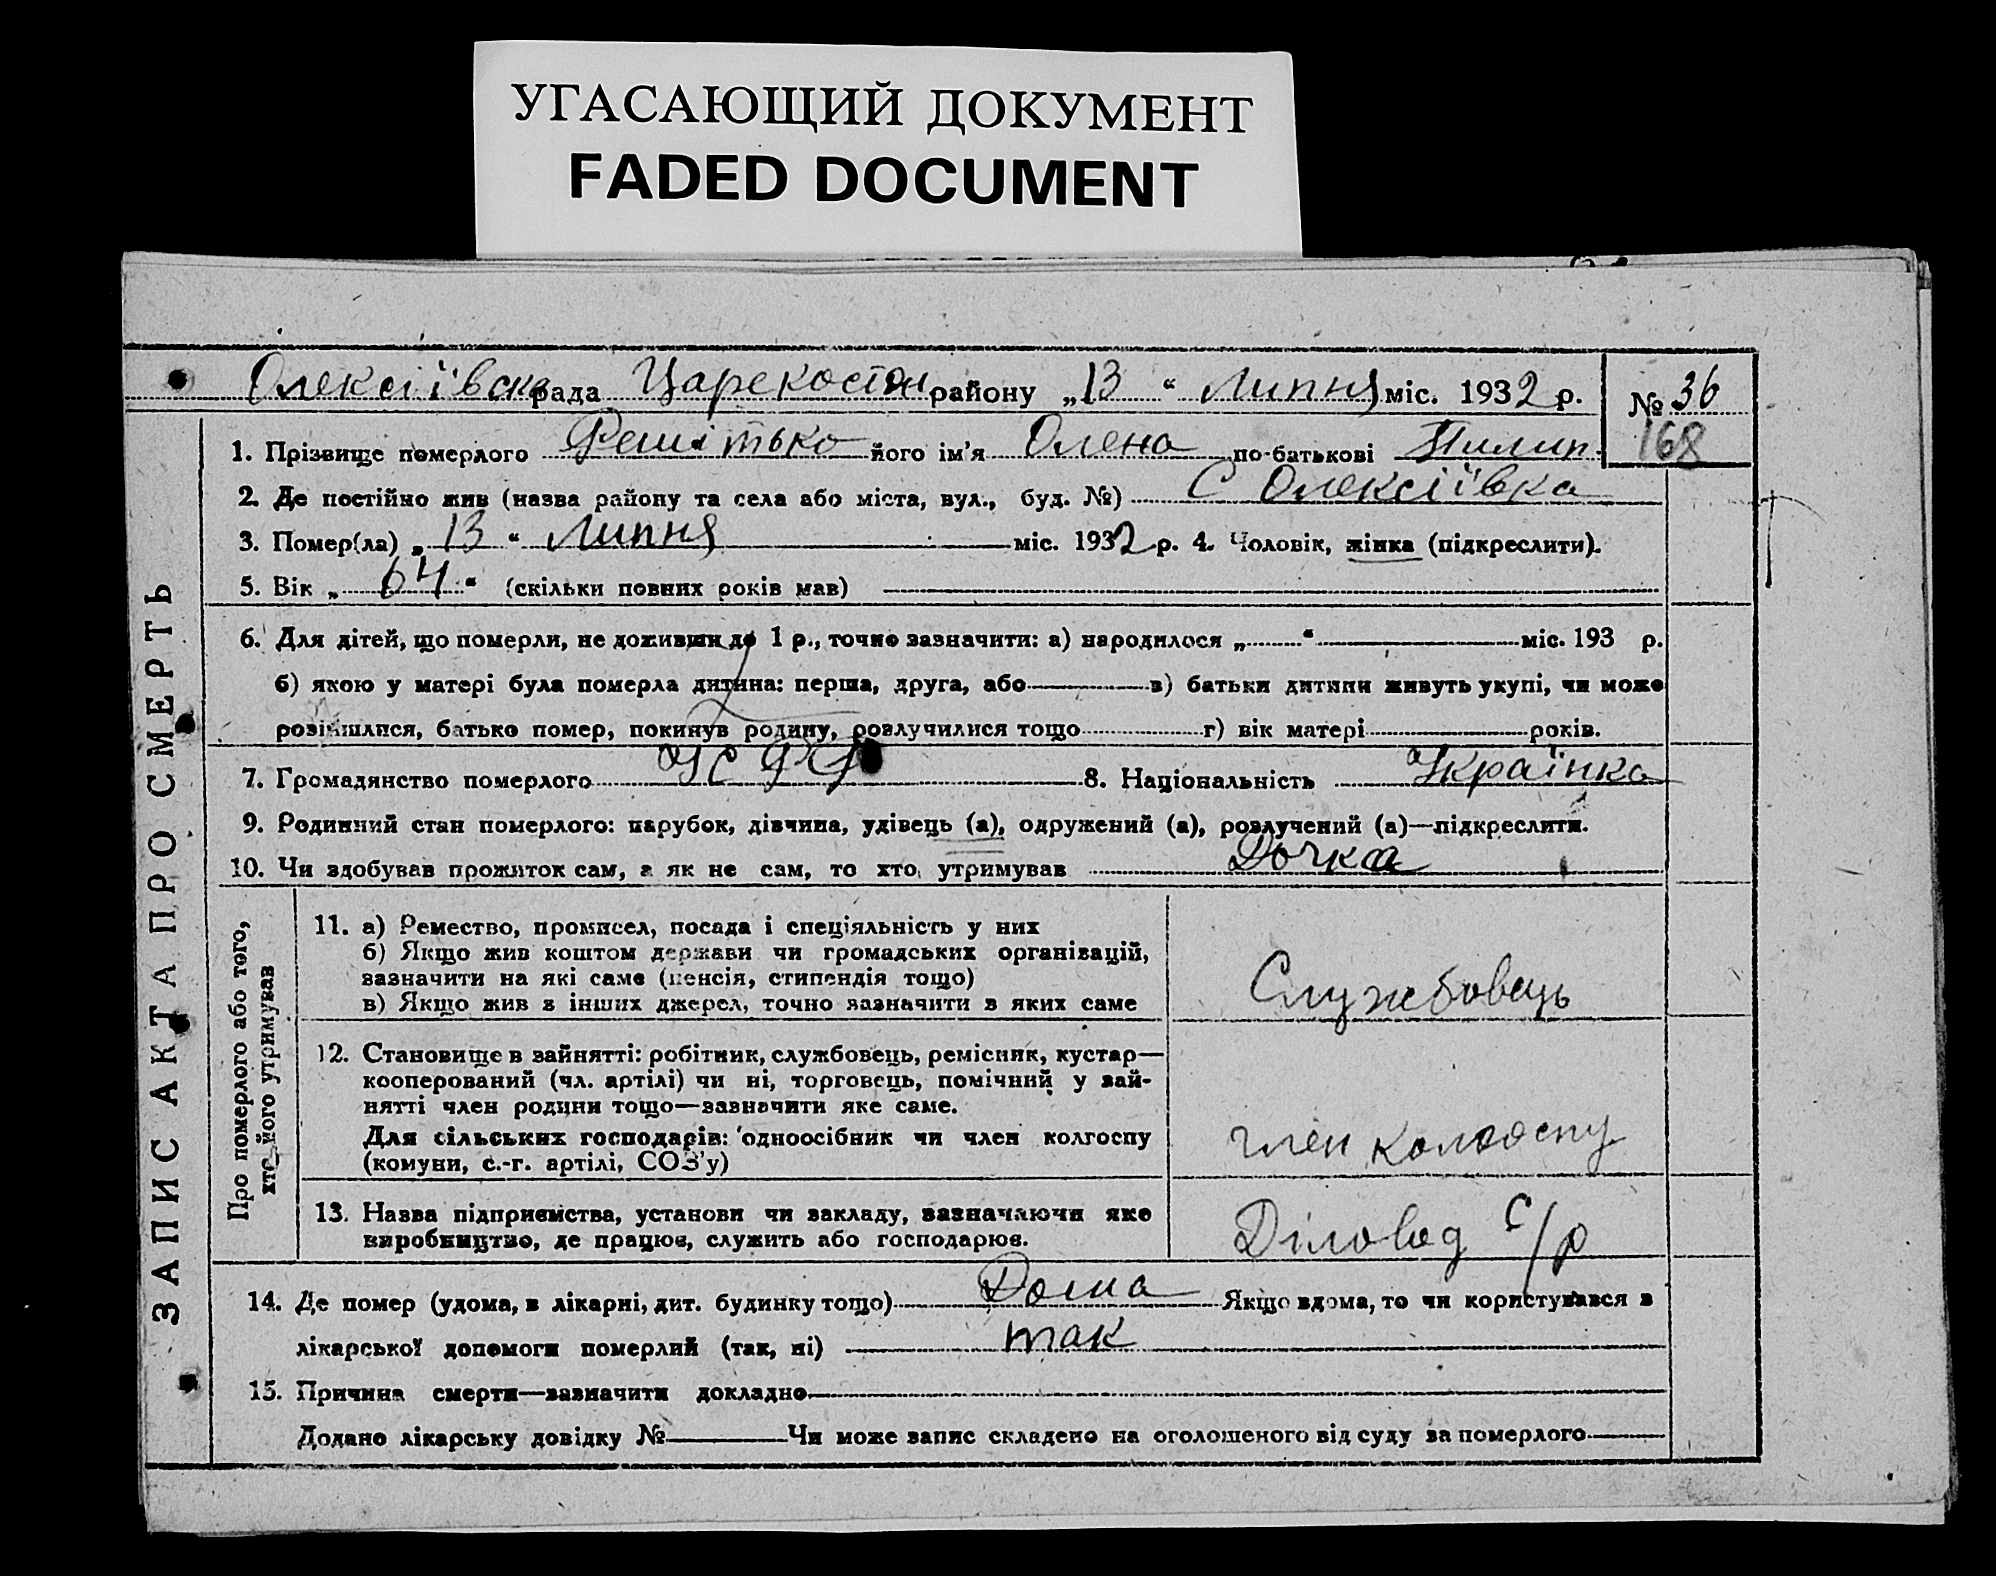 УГАСАЮЩИЙ ДОКУМЕНТ
FADED DOCUMENT
Олексіївська рада Царекостян району „13“ Липня міс. 1932 р. № 36
168
1. Прізвище померлого Решітько його ім'я Олена по-батькові Пилип.
2. Де постійно жив (назва району та села або міста, вул., буд. №) С Олексіївка
3. Помер(ла) „13“ Липня міс. 1932 р. 4. Чоловік, жінка (підкреслити).
5. Вік „64“ (скільки повних років мав)
6. Для дітей, що померли, не доживши до 1 р., точно зазначити: а) народилося „ “ міс. 193 р.
б) якою у матері була померла дитина: перша, друга, або в) батьки дитини живуть укупі, чи може
розійшлися, батько помер, покинув родину, розлучилися тощо г) вік матері років.
7. Громадянство померлого УСРР 8. Національність Українка
9. Родинний стан померлого: парубок, дівчина, удівець (а), одружений (а), розлучений (а)—підкреслити.
10. Чи здобував прожиток сам, а як не сам, то хто утримував Дочка
ЗАПИС АКТА ПРО СМЕРТЬ
Про померлого або того,
хто його утримував
11. а) Ремество, промисел, посада і спеціяльність у них
б) Якщо жив коштом держави чи громадських організацій,
зазначити на які саме (пенсія, стипендія тощо)
в) Якщо жив з інших джерел, точно зазначити з яких саме
Службовець
12. Становище в зайнятті: робітник, службовець, ремісник, кустар—
кооперований (чл. артілі) чи ні, торговець, помічний у зай-
нятті член родини тощо—зазначити яке саме.
Для сільських господарів: одноосібник чи член колгоспу
(комуни, с.-г. артілі, СОЗ'у)
член колгоспу
13. Назва підприємства, установи чи закладу, зазначаючи яке
виробництво, де працює, служить або господарює.
Діловод с/р
14. Де помер (удома, в лікарні, дит. будинку тощо) Дома Якщо вдома, то чи користувався з
лікарської допомоги померлий (так, ні) так
15. Причина смерти—зазначити докладно
Додано лікарську довідку № Чи може запис складено на оголошеного від суду за померлого